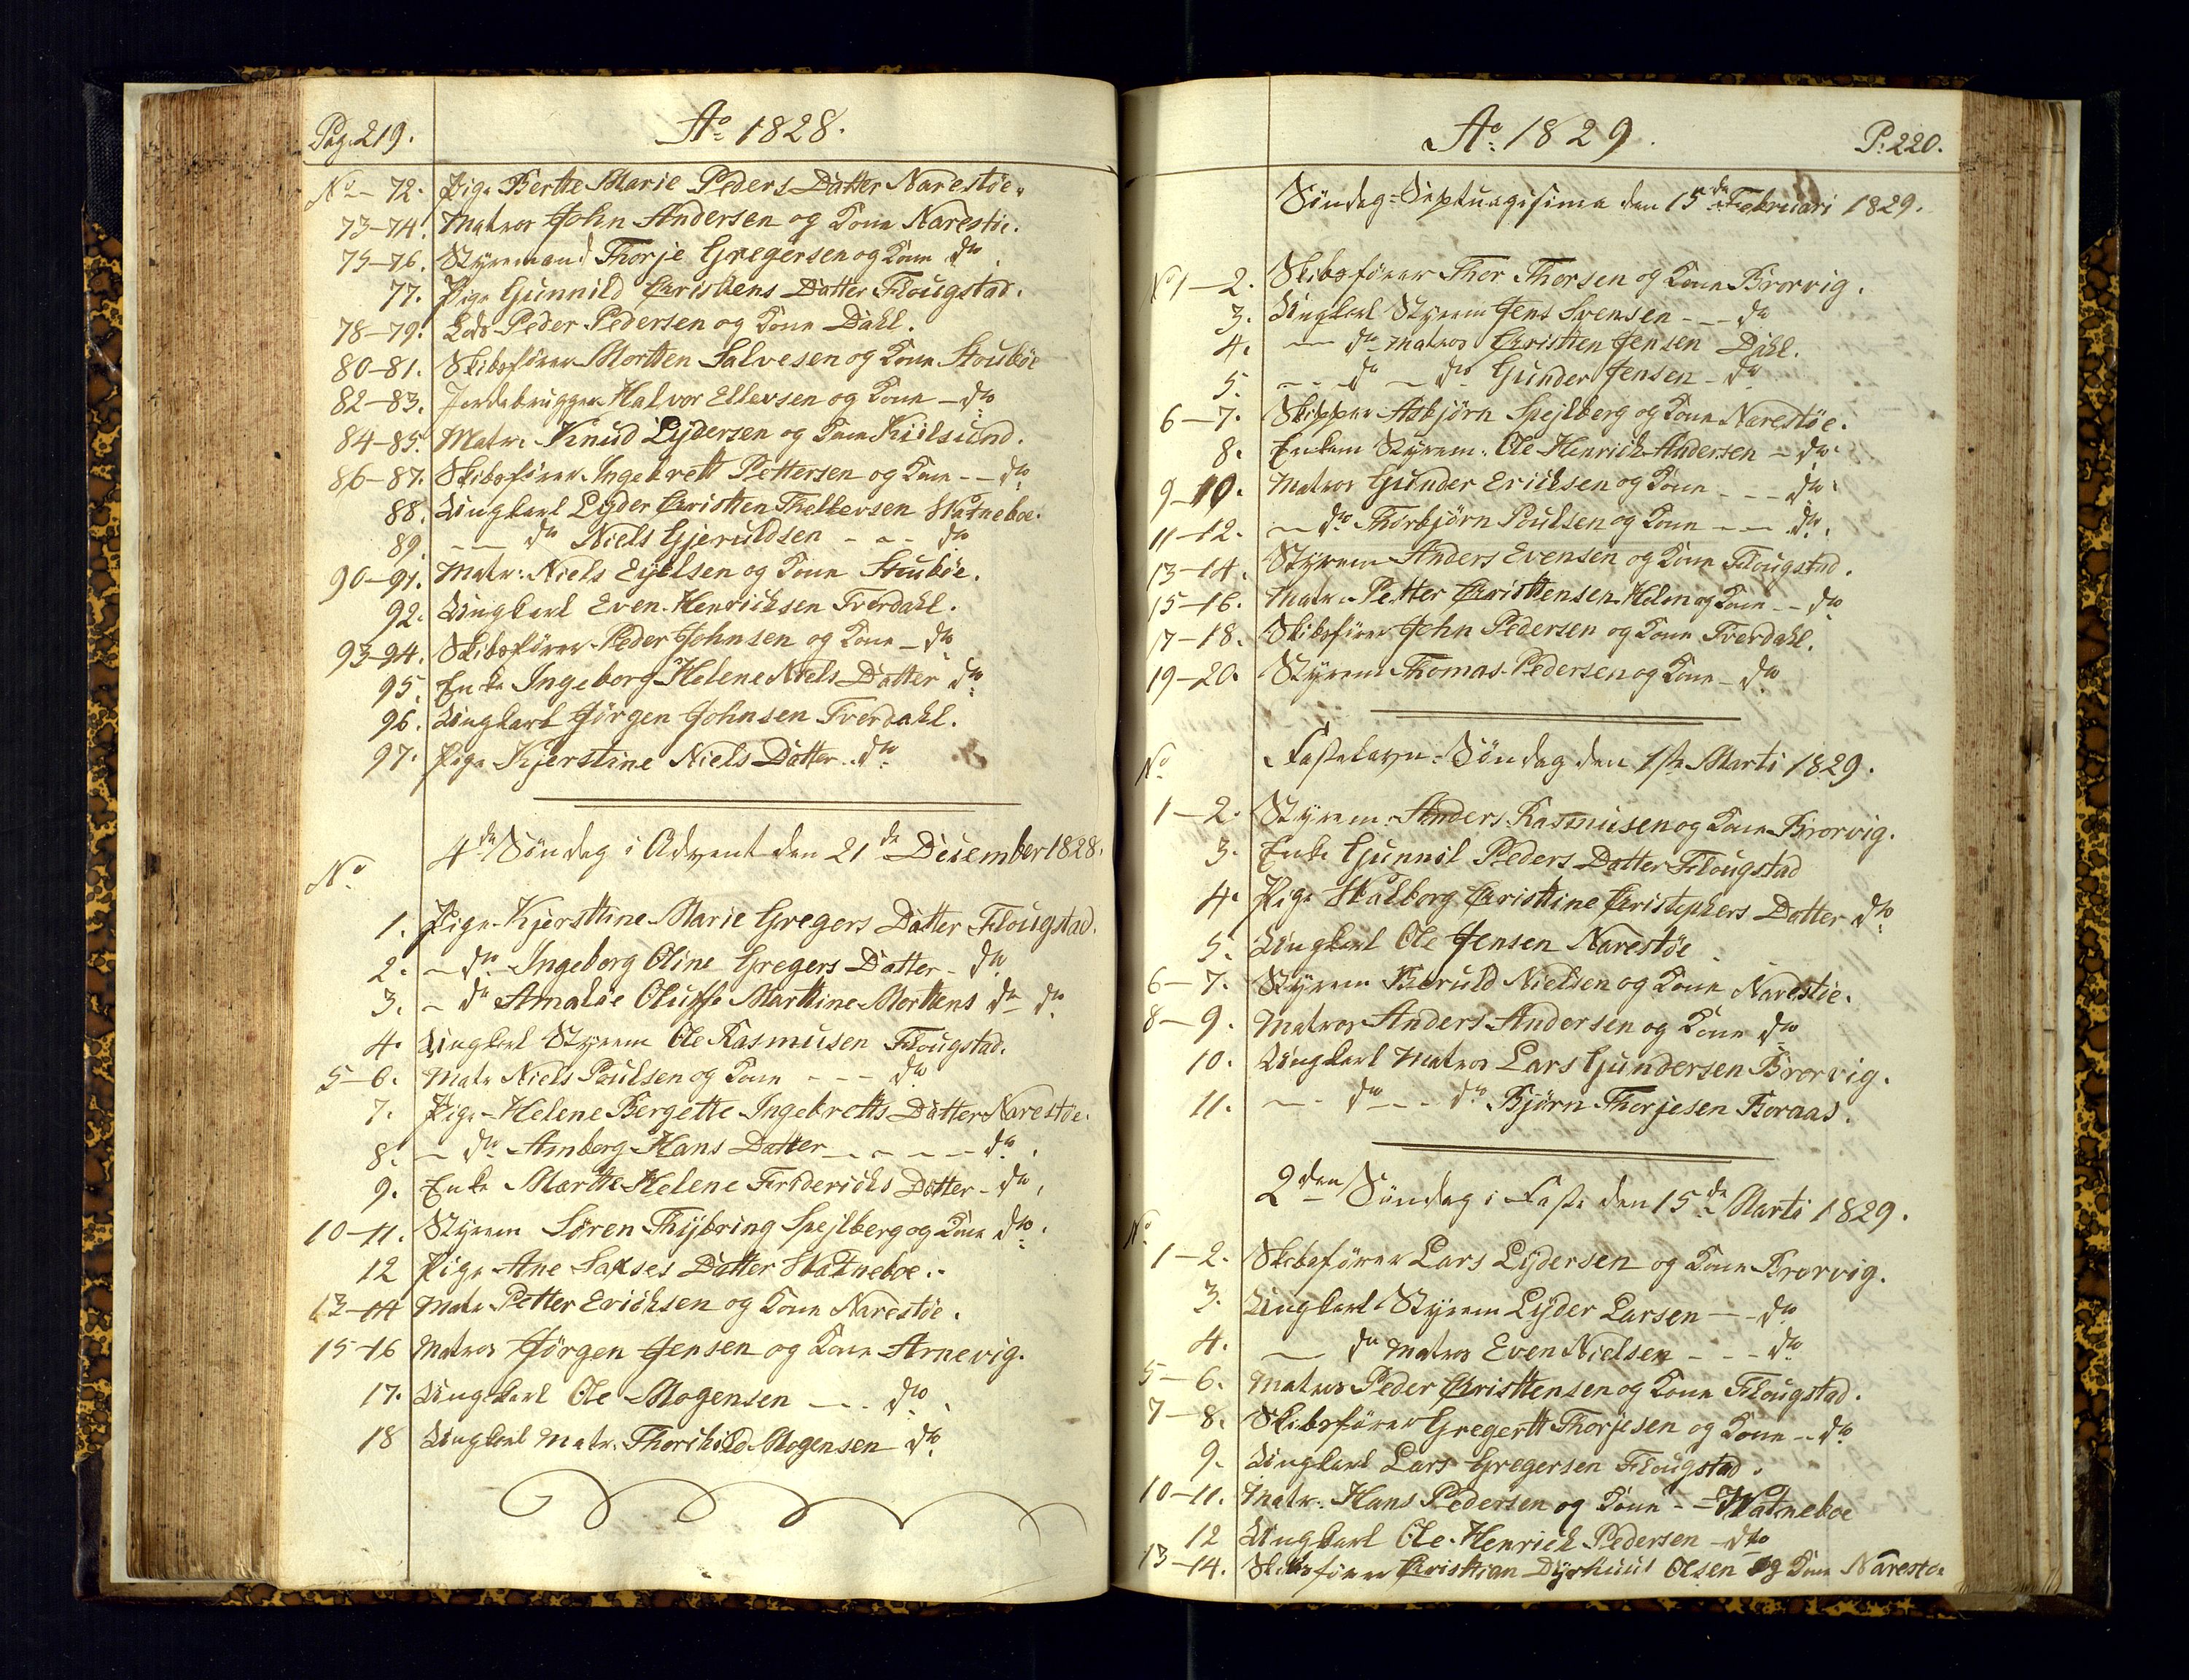 Pag. 219.
Ao 1828.
No – 72. Pige Berthe Marie Peders Datter Narestöe.
73–74. Matros John Andersen og Kone Narestöe.
75–76. Styrmand Thorje Gregersen og Kone do
77. Pige Gunnild Christens Datter Flougstad.
78–79. Lods Peder Pedersen og Kone Dahl.
80–81. Skibsförer Mortten Salvesen og Kone Stouböe
82–83. Jordebrugger Halvor Ellevsen og Kone – do
84–85. Matr. Knud Lydersen og Kone Kiilsund.
86–87. Skibsförer Ingebrett Pettersen og Kone – – do
88. Ungkarl Lyder Christen Thellevsen Watneboe.
89. – – do Niels Gjeruldsen – – – do
90–91. Matr. Niels Eyelsen og Kone Stoubóe.
92. Ungkarl Even Henrichsen Tverdahl.
93–94. Skibsförer Peder Johnsen og Kone – do
95. Enke Ingeborg Helene Niels Datter do
96. Ungkarl Jörgen Johnsen Tverdahl.
97. Pige Kjerstine Niels Datter do
No 4de Söndag i Advent den 21de December 1828.
1. Pige Kjersttine Marie Gregers Datter Flougstad.
2. – do Ingeborg Oline Gregers Datter – do
3. – do Amalie Oluffe Marttine Morttens do do
4. Ungkarl Styrm Ole Rasmusen Flougstad.
5–6. Matr Niels Poulsen og Kone – – – do
7. Pige Helene Bergette Ingebretts Datter Narestöe.
8. – do Amborg Hans Datter – – – – do
9. Enke Martte Helene Fredericks Datter – do
10–11. Styrm Sören Thybring Spejlberg og Kone do
12 Pige Ane Saxses Datter Watneboe.
13–14 Matr Petter Erichsen og Kone Narestöe.
15–16 Matros Jörgen Jensen og Kone Arnevig.
17. Ungkarl Ole Mogensen – – – do
18 Ungkarl Matr. Thorkild Mogensen do
Ao 1829.
P. 220.
Söndag Septuagisima den 15de Februari 1829.
No 1–2. Skibsförer Thor Thorsen og Kone Brorvig.
3. Ungkarl Styrm Jens Svensen – – – do
4. – – do Matros Christten Jensen Dahl.
5. – – do – do Gunder Jensen – do
6–7. Skipper Asbjörn Spejlberg og Kone Narestöe.
8. Enkem Styrm. Ole Henrich Andersen – do
9–10. Matros Gunder Ericksen og Kone – – – do
11–12. – – do Thorbjörn Poulsen og Kone – – – do
13–14. Styrm Anders Evensen og Kone Flougstad.
15–16. Matr. Petter Christtensen Holm og Kone – – do
17–18. Skibsförer John Pedersen og Kone Tverdahl.
19–20. Styrm Thomas Pedersen og Kone – do
No Fastelavn Söndag den 1ste Marti 1829.
1–2. Styrm. Anders Rasmusen og Kone Brorvig.
3. Enke Gunnil Peders Datter Flougstad
4. Pige Walborg Christtine Christephers Datter do
5. Ungkarl Ole Jensen Narestöe
6–7. Styrm Beruld Nielsen og Kone Narestöe.
8–9. Matros Anders Andersen og Kone do
10. Ungkarl Matros Lars Gundersen Brorvig.
11. – – do – – do Bjórn Thorjesen Boraas.
No 2den Söndag i Faste den 15de Marti 1829.
1–2. Skibsförer Lars Lydersen og Kone Brorvig.
3. Ungkarl Styrm Lyder Larsen – – do
4. – – do Matros Even Nielsen – – – do
5–6. Matros Peder Christtensen og Kone Flougstad.
7–8. Skibsförer Gregertt Thorjesen og Kone – – do
9. Ungkarl Lars Gregersen Flougstad.
10–11. Matr. Hans Pedersen og Kone – – Watneboe
12 Ungkarl Ole Henrich Pedersen – do
13–14. Skibsförer Christtian Dyrhuus Olsen og Kone Narestöe